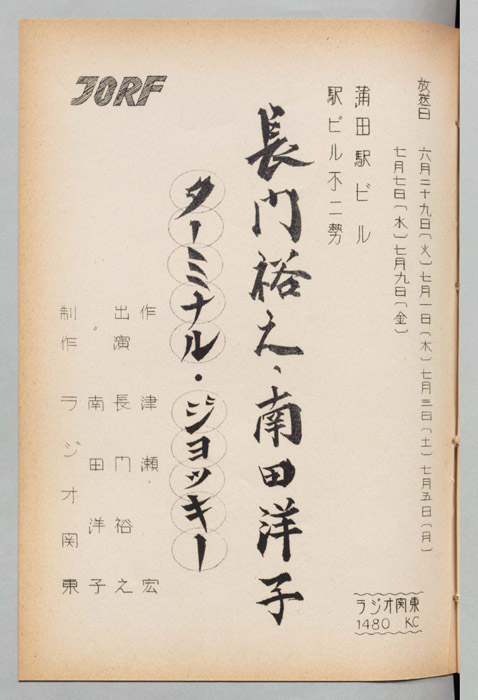 放送日 六月二十九日(火)七月一日(木)七月三日(土)七月五日(月)
七月七日(水)七月九日(金)
蒲田駅ビル
駅ビル不二勢
長門裕之、南田洋子
ターミナル・ジョッキー
JORF
作 津瀬宏
出演 長門裕之
〃 南田洋子
制作 ラジオ関東
ラジオ関東
1480 KC